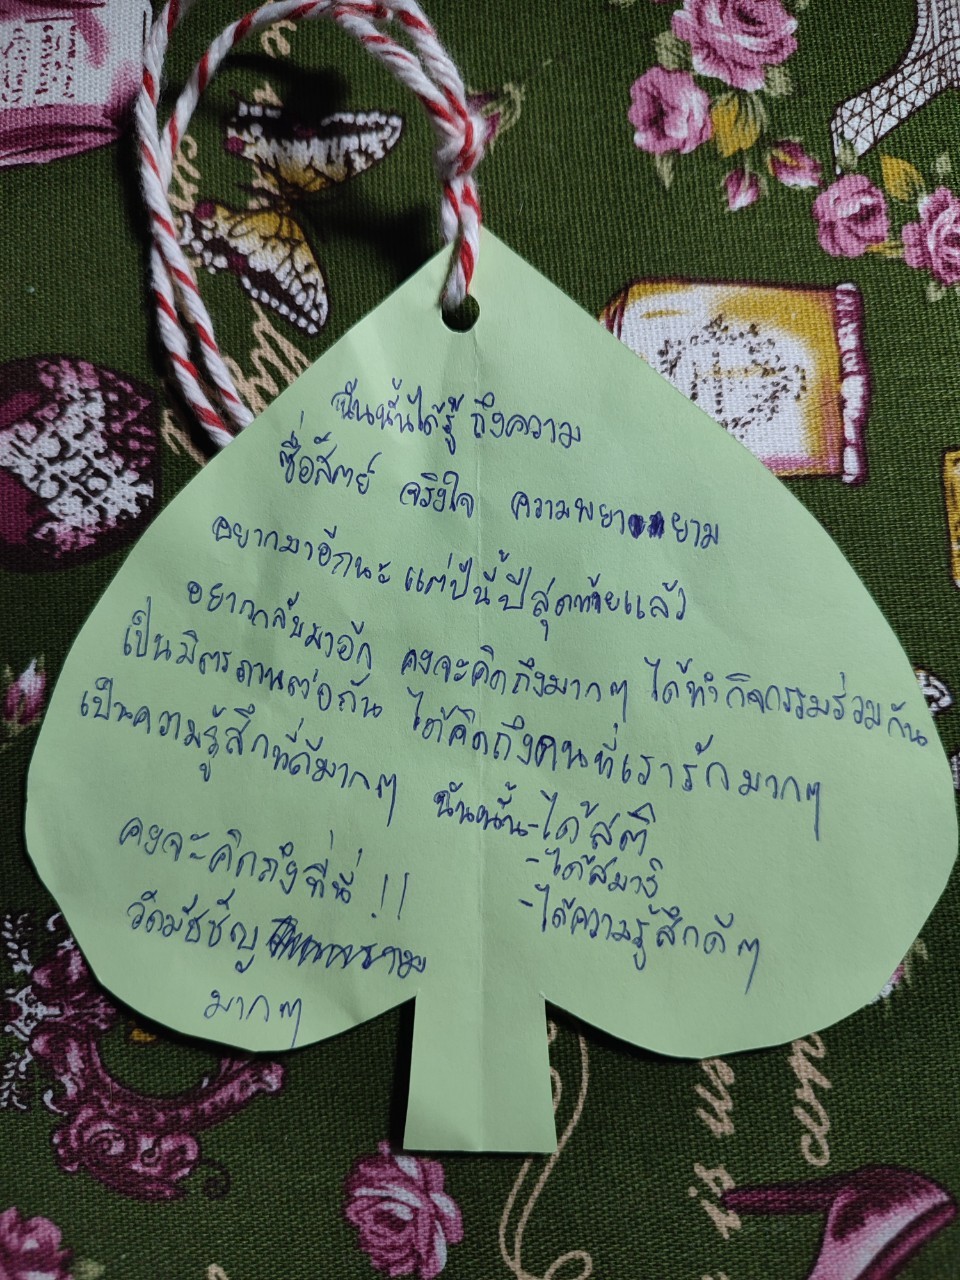 ฉันนั้นได้รู้ ถึงความ
ซื่อสัตย์ จริงใจ ความพยายาม
อยากมาอีกนะ แต่ปีนี้ปีสุดท้ายแล้ว
อยากกลับมาอีก คงจะคิดถึงมากๆ ได้ทำกิจกรรมร่วมกัน
เป็นมิตรภาพต่อกัน ได้คิดถึงคนที่เรารักมากๆ
เป็นความรู้สึกที่ดีมากๆ ฉันนั้น-ได้สติ
-ได้สมาธิ
-ได้ความรู้สึกดีๆ
คงจะคิดถึงที่นี่ !!
วัดมัชชัญ
มากๆ